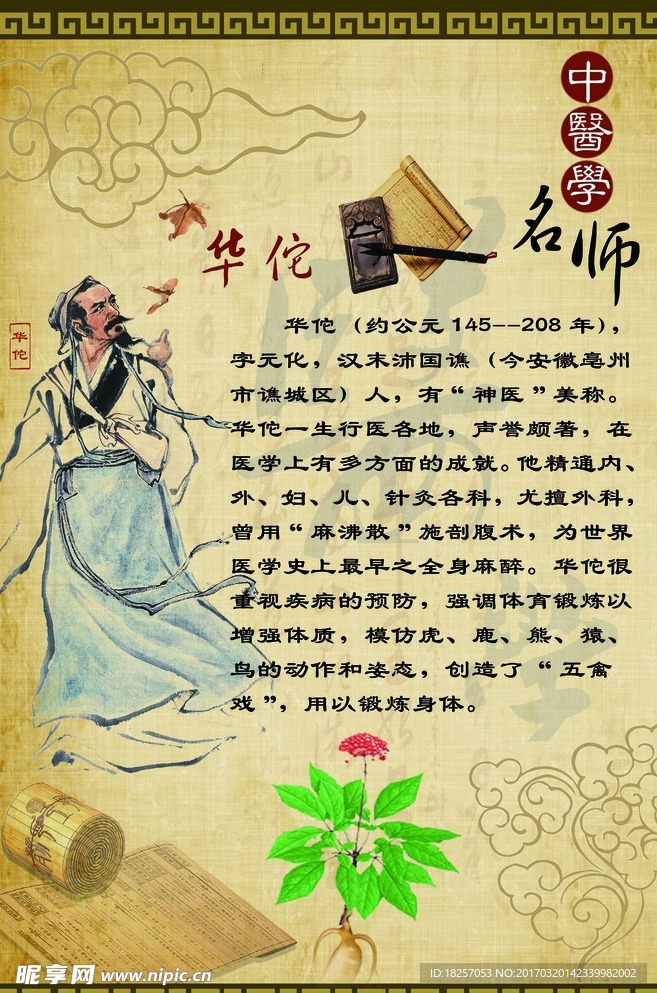 中醫學
名师
华佗
华佗
华佗（约公元145--208 年），
字元化，汉末沛国谯（今安徽亳州
市谯城区）人，有“神医”美称。
华佗一生行医各地，声誉颇著，在
医学上有多方面的成就。他精通内、
外、妇、儿、针灸各科，尤擅外科，
曾用“麻沸散”施剖腹术，为世界
医学史上最早之全身麻醉。华佗很
重视疾病的预防，强调体育锻炼以
增强体质，模仿虎、鹿、熊、猿、
鸟的动作和姿态，创造了“五禽
戏”，用以锻炼身体。
昵享网 www.nipic.cn
ID:18257053 NO:20170320142339982002